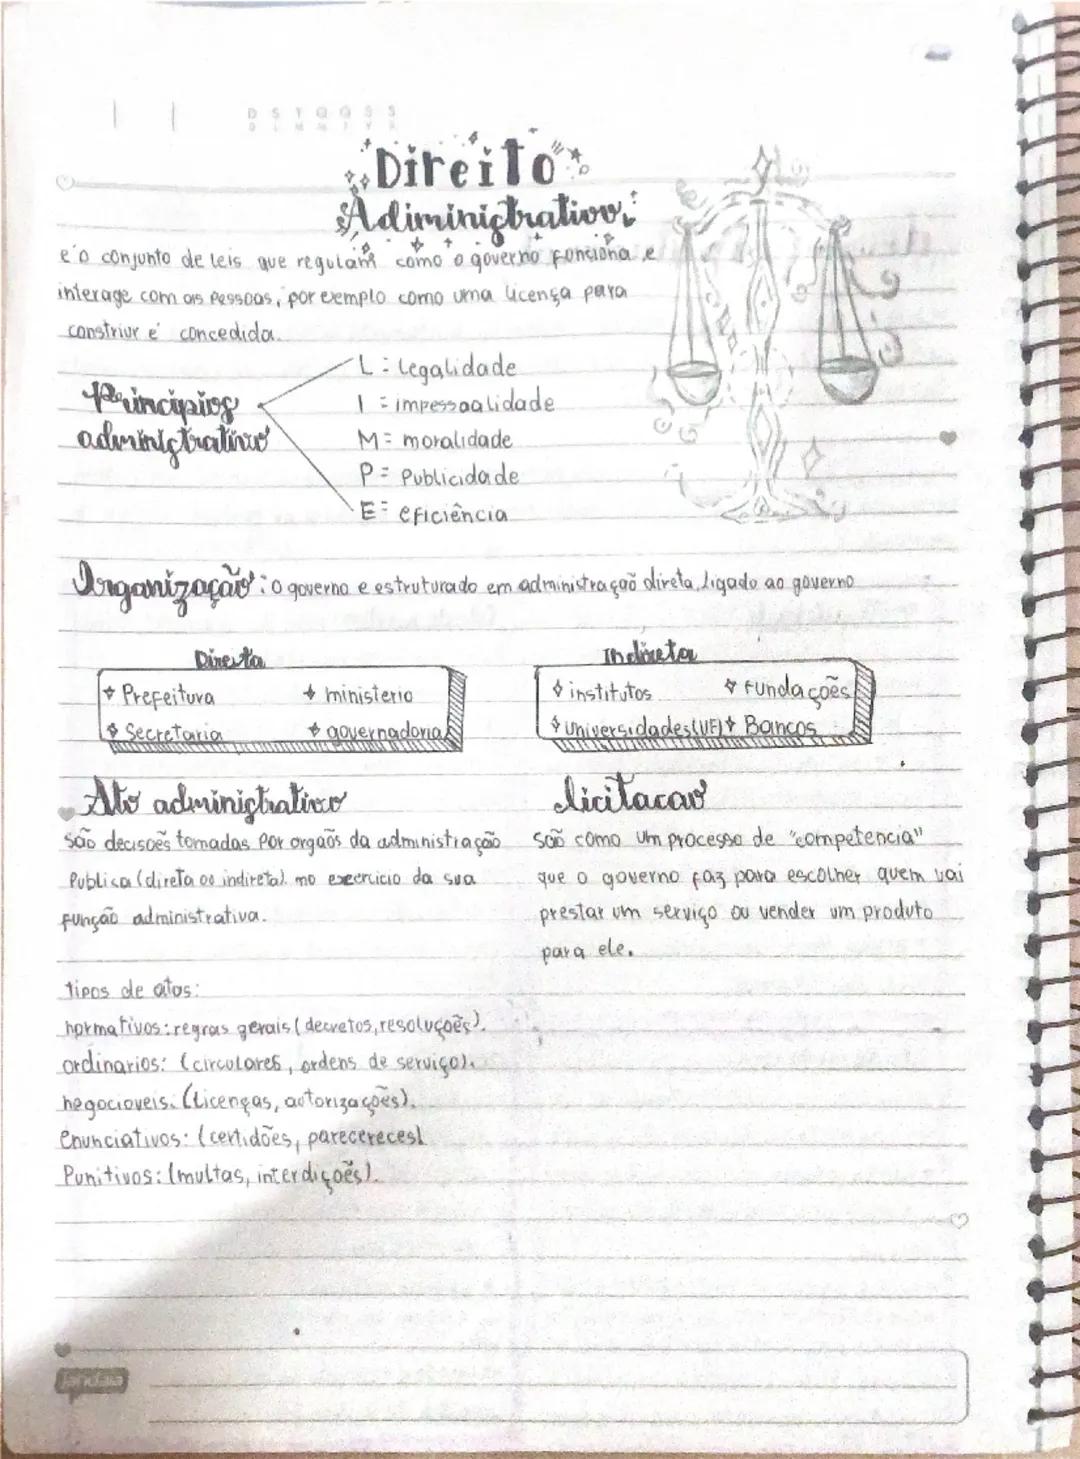 D S T Q Q S S
D L M M J V S
Direito
Adiministrativo:
é o conjunto de leis que regulam como o governo funciona e
interage com as pessoas, por exemplo como uma licença para
constriur é concedida.
L = legalidade
Principios
I = impessoalidade
administrativo
M = moralidade
P = Publicidade
E = eficiência
Organização: o governo e estruturado em administração direta, ligado ao governo
Direta
Indireta
Prefeitura ministerio
institutos fundações
Secretaria governadoria
universidades (UF) Bancos
Ato administrativo
licitacao
são decisões tomadas por orgãos da administração
são como um processo de "competencia"
Publica (direta ou indireta). no exercicio da sua
que o governo faz para escolher quem vai
função administrativa.
prestar um serviço ou vender um produto
para ele.
tipos de atos:
normativos: regras gerais (decretos, resoluções).
ordinarios: (circulares, ordens de serviço).
negocioveis: (licenças, autorizações).
Enunciativos: (certidões, parecereces)
Punitivos: (multas, interdições).
jandaia